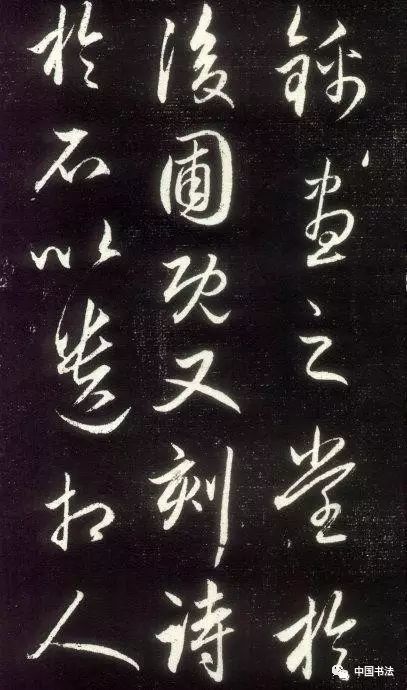 錦晝之堂於
後圃既又刻詩
於石以遺相人
中国书法